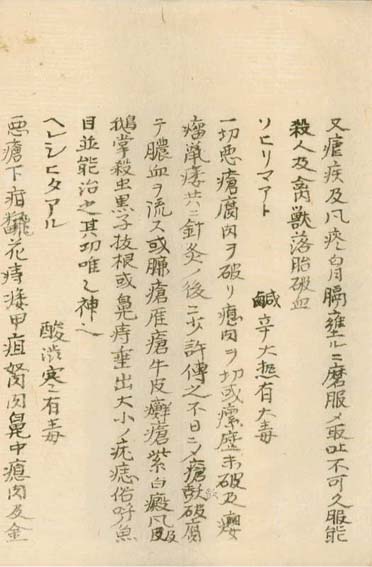 又瘧疾及風痰胷膈壅ルニ磨服メ取吐不可久服能
殺人及禽獣落胎破血
ソヒリマアト　鹹辛大熱有大毒
一切悪瘡腐肉ヲ破リ瘜肉ヲ切或瘰歴未破及癭
瘤鼠瘻共ニ針灸ノ後ニ少許傅之不日ニメ瘡敷破腐
テ膿血ヲ流ス或臁瘡疽瘡牛皮癬瘡紫白癜風及
鵝掌殺虫黒子抜根或鼻痔垂出大小ノ疣痣俗呼魚
目並能治之其功唯シ神也
ヘレシヒタアル　酸渋寒有毒
悪瘡下疳翻花痔瘻甲疽努肉鼻中瘜肉及金